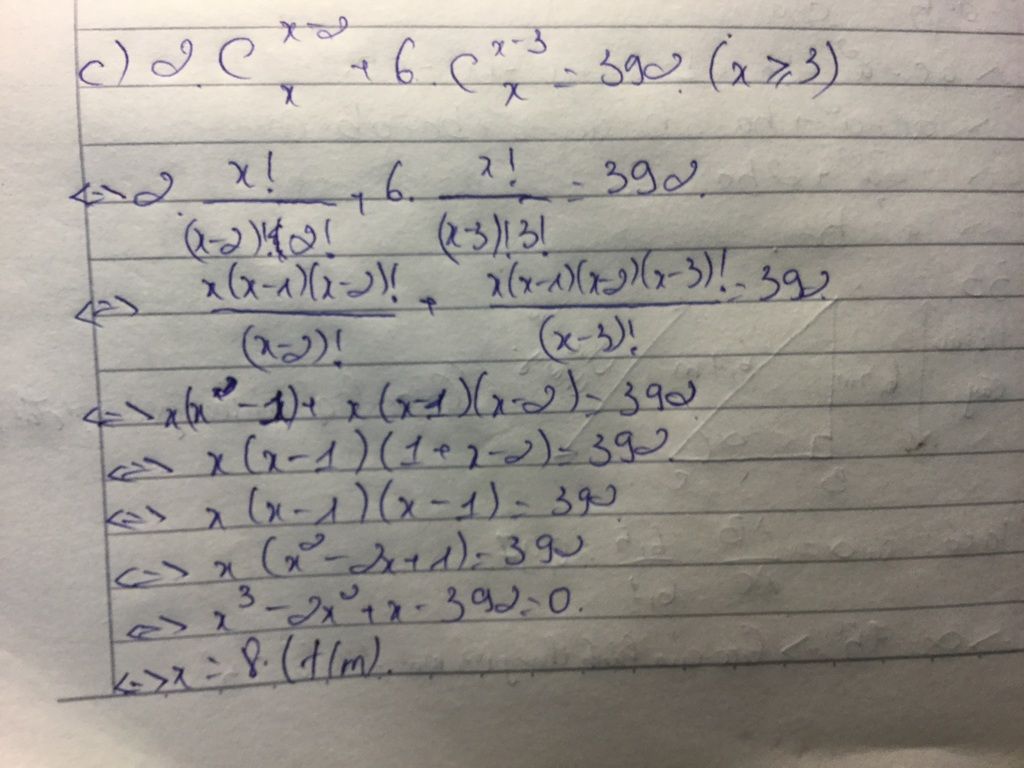 c) 2. C_x^{x-2} + 6. C_x^{x-3} = 392. (x ≥ 3)
<=> 2. x!/((x-2)! 2!) + 6. x!/((x-3)! 3!) = 392.
<=> x(x-1)(x-2)!/(x-2)! + x(x-1)(x-2)(x-3)!/(x-3)! = 392
<=> x(x-1) + x(x-1)(x-2) = 392
<=> x(x-1)(1+x-2) = 392
<=> x(x-1)(x-1) = 392
<=> x(x²-2x+1) = 392
<=> x³-2x²+x-392=0.
<=> x = 8. (t/m).